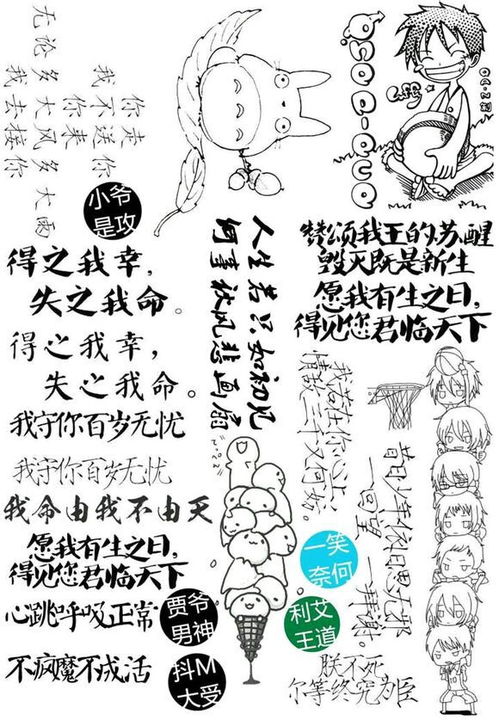 你走
我不送你
你来
无论多大风多大雨
我去接你
小爷
是攻
得之我幸，
失之我命。
得之我幸，
失之我命。
我守你百岁无忧
我守你百岁无忧
我命由我不由天
愿我有生之日，
得见您君临天下
心跳呼吸正常
不疯魔不成活
贾爷
男神
抖M
大受
人生若只如初见
何事秋风悲画扇
赞颂我王的苏醒
毁灭既是新生
愿我有生之日，
得见您君临天下
我若在你心上
情敌三千又何妨。
昔日少年依旧
一回望
一拜谢。
一笑
奈何
利艾
王道
朕不死
尔等终究为臣